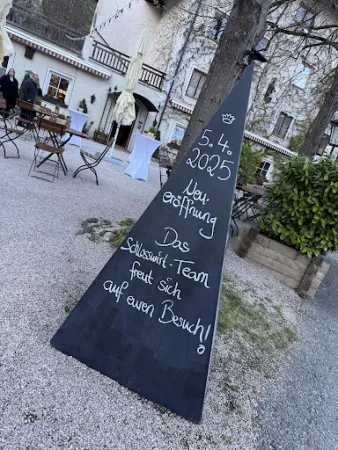 5.4.
2025
Neu-
eröffnung
Das
Schlosswirt-Team
freut sich
auf euren Besuch!